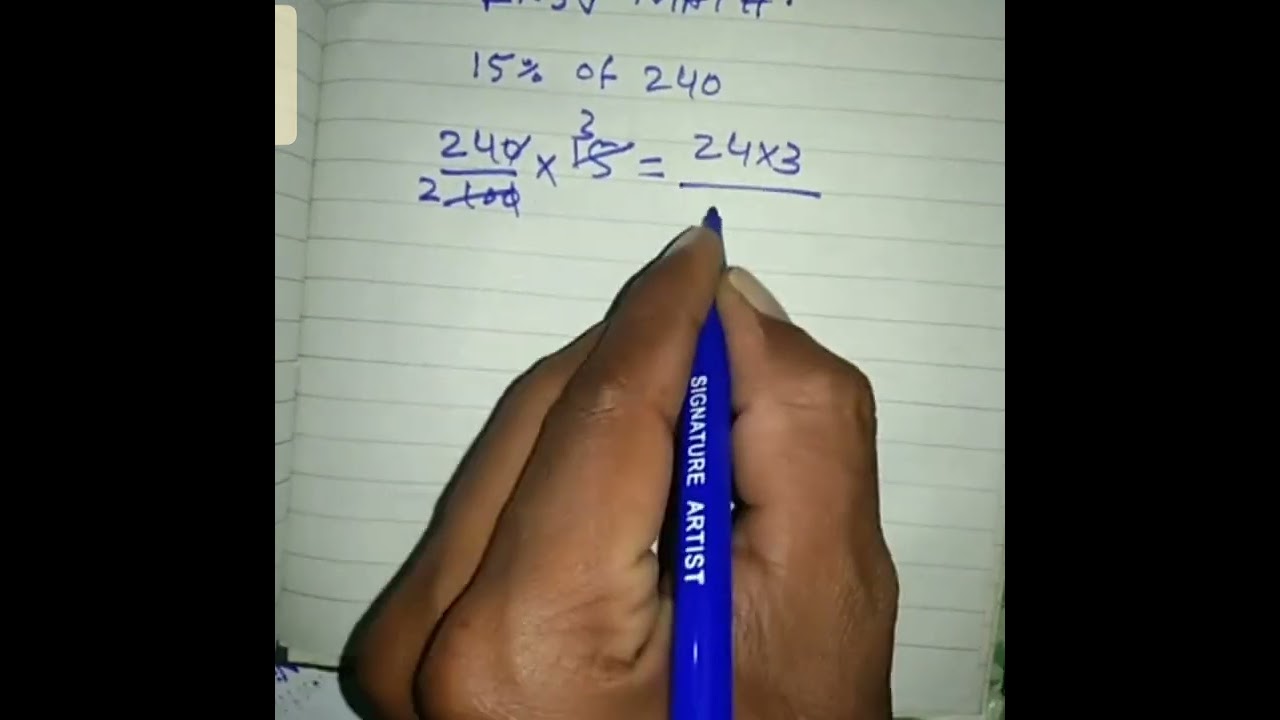 15% of 240
240/100 2 × 15 3 = 24×3
SIGNATURE ARTIST